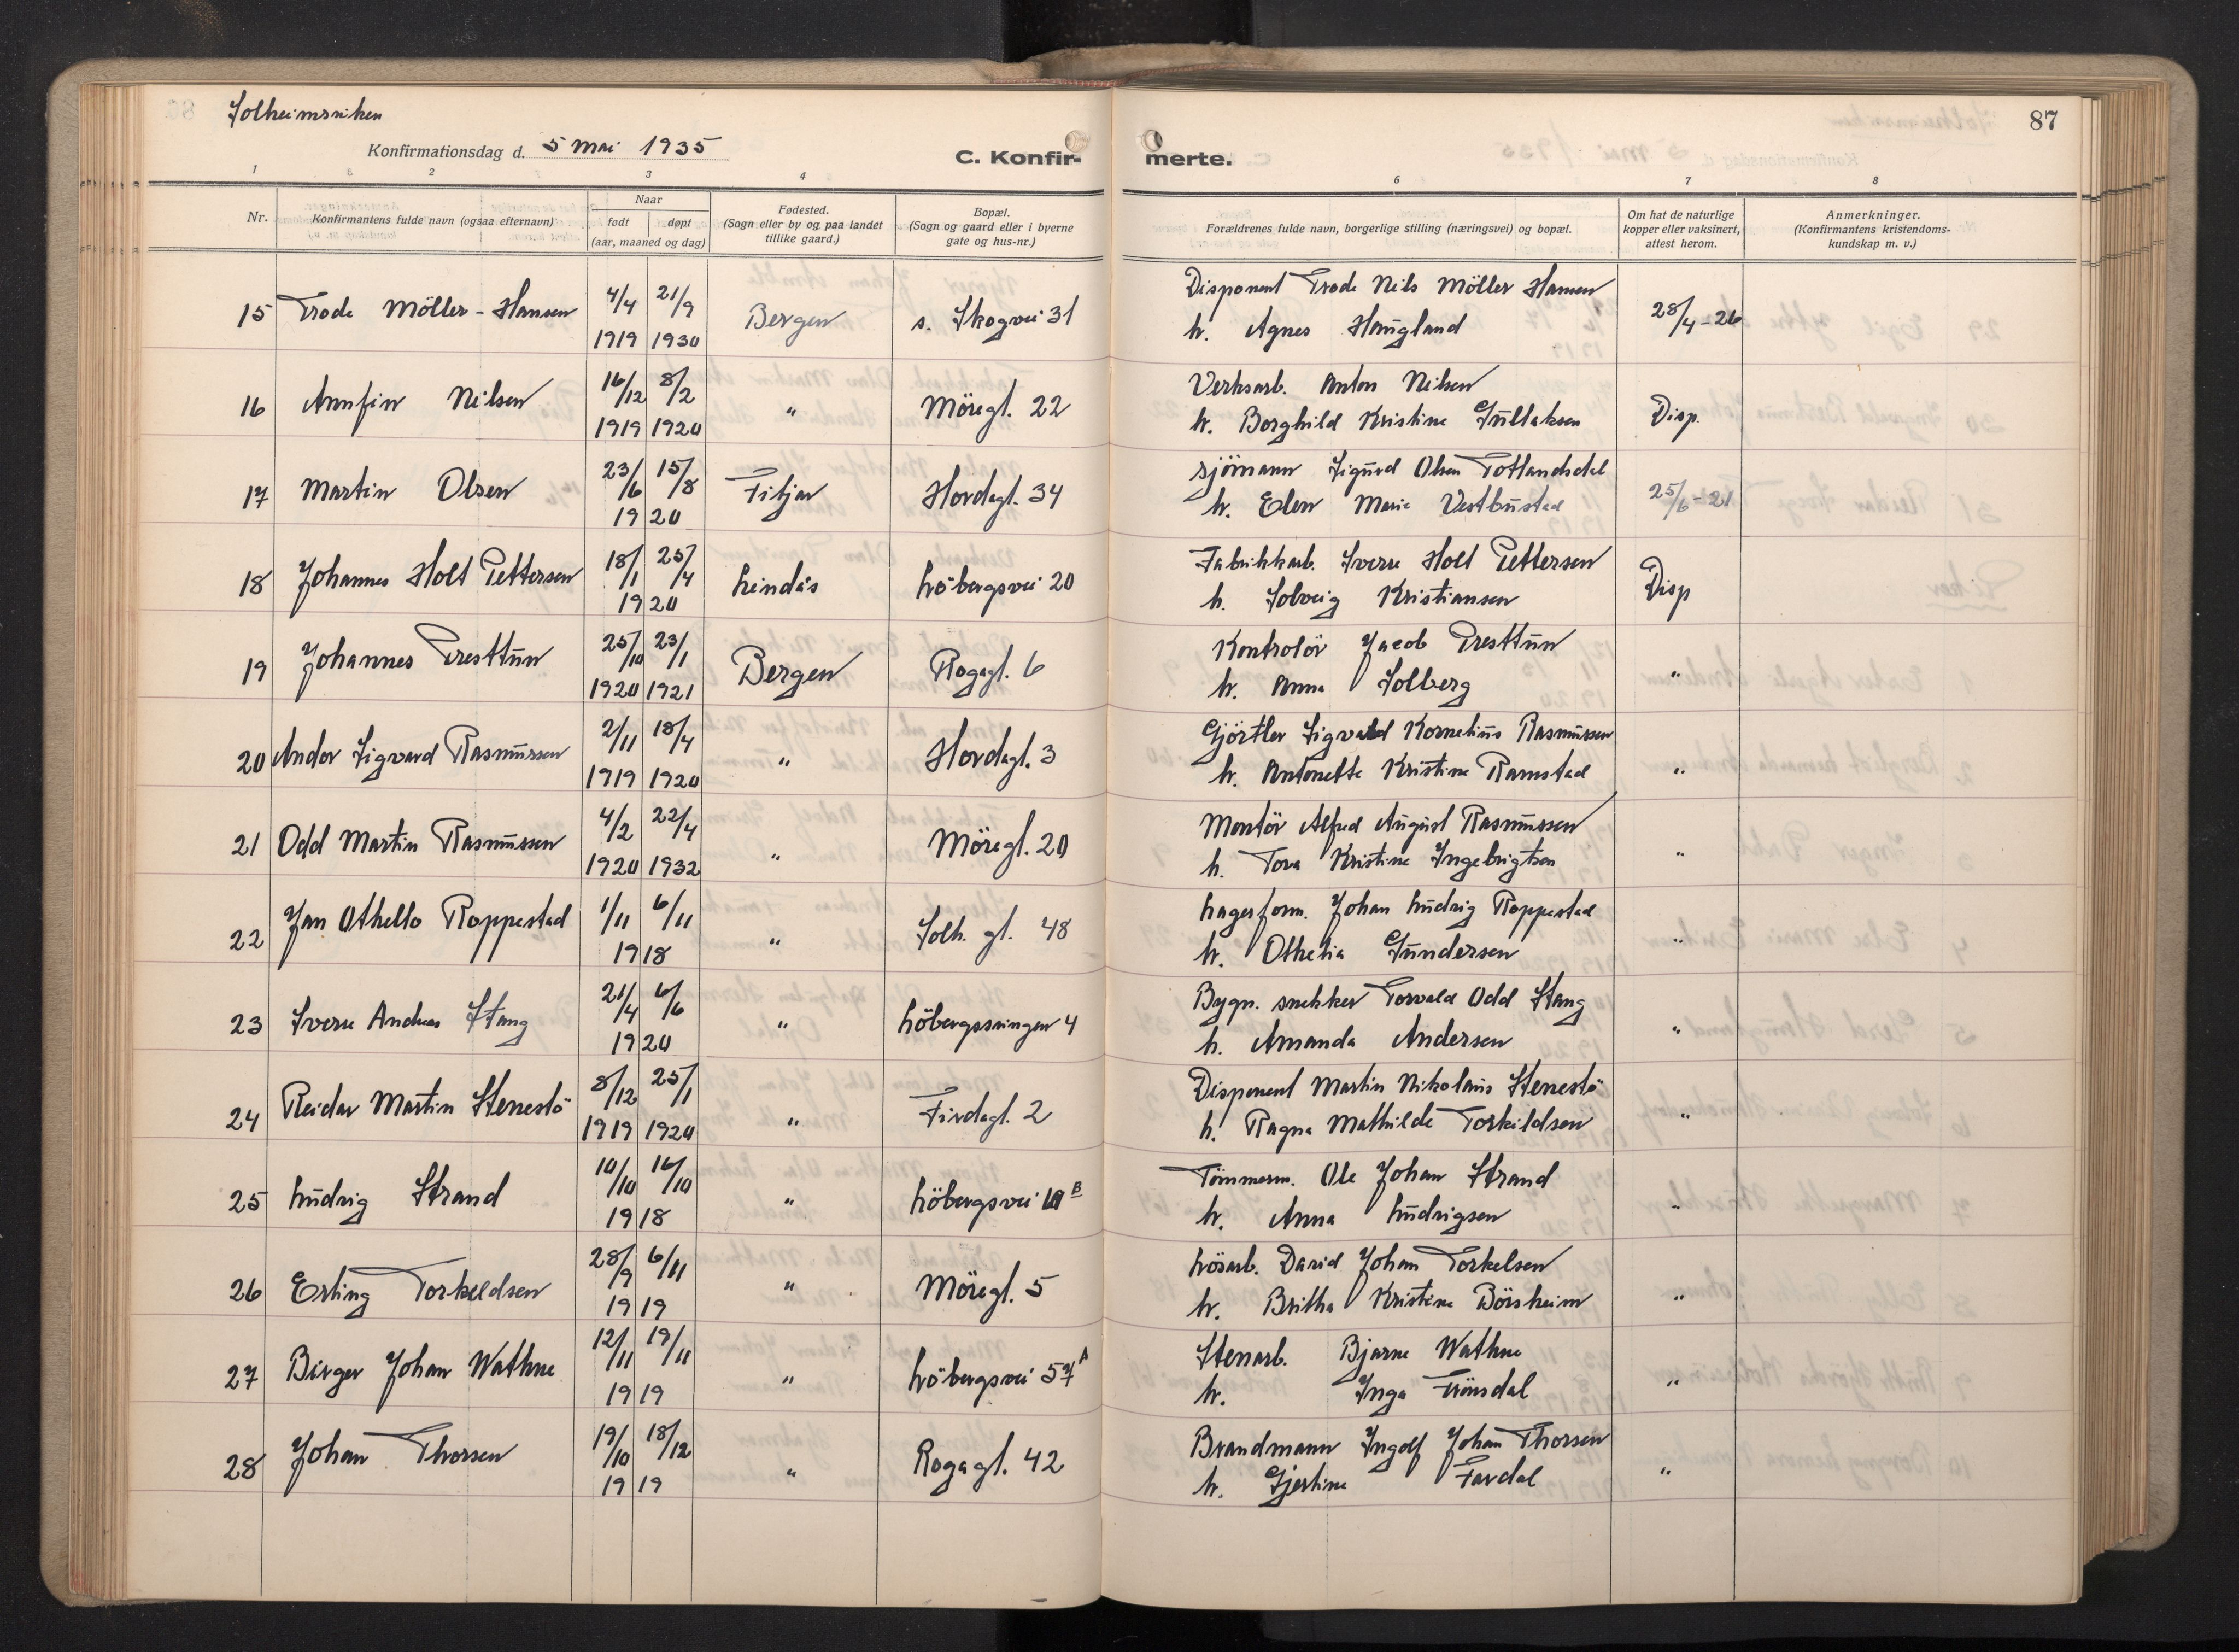 Solheimsviken
Konfirmationsdag d. 5 mai 1935
C. Konfir-
merte.
87
1 2 3 4 6 7 8
Nr.
Konfirmantens fulde navn (ogsaa efternavn)
Naar
født døpt
(aar, maaned og dag)
Fødested.
(Sogn eller by og paa landet
tillike gaard.)
Bopæl.
(Sogn og gaard eller i byerne
gate og hus-nr.)
Forældrenes fulde navn, borgerlige stilling (næringsvei) og bopæl.
Om hat de naturlige
kopper eller vaksinert,
attest herom.
Anmerkninger.
(Konfirmantens kristendoms-
kundskap m. v.)
15 Frode Möller-Hansen 4/4 1919 21/9 1930 Bergen s. Skogvei 31
Disponent Frode Nils Möller Hansen
h. Agnes Haugland
28/4-26
16 Arnfin Nilsen 16/12 1919 8/2 1920 " Möregt. 22
Verksarb. Anton Nilsen
h. Borghild Kristine Gullaksen
Disp.
17 Martin Olsen 23/6 15/8 1920 Fitjar Hordagt. 34
sjömann Sigurd Olsen Totlandsdal
h. Elen Marie Vestbustad
25/6-21
18 Johannes Holt Pettersen 18/1 25/4 1920 Lindås Löbergsvei 20
Fabrikkarb. Sverre Holt Pettersen
h. Solveig Kristiansen
Disp
19 Johannes Presttun 25/10 1920 23/1 1921 Bergen Rogagt. 6
Kontrolör Jacob Presttun
h. Anna Solberg
"
20 Andor Sigvard Rasmussen 2/11 1919 18/4 1920 " Hordagt. 3
Gjörtler Sigvald Kornelius Rasmussen
h. Antonette Kristine Ramstad
"
21 Odd Martin Rasmussen 4/2 1920 22/4 1932 " Möregt. 20
Montör Alfred August Rasmussen
h. Tora Kristine Ingebrigtsen
"
22 Jan Othello Roppestad 1/11 6/11 1918 " Solh. gt. 48
Lagerform. Johan Ludvig Roppestad
h. Othelia Gundersen
"
23 Sverre Andreas Stang 21/4 6/6 1920 " Löbergssvingen 4
Bygn. snekker Torvald Odd Stang
h. Amanda Andersen
"
24 Reidar Martin Stenestö 8/12 1919 25/1 1920 " Firdagt. 2
Disponent Martin Nikolaus Stenestö
h. Ragna Mathilde Torkildsen
"
25 Ludvig Strand 10/10 16/10 1918 " Löbergsvei B
Tömmerm. Ole Johan Strand
h. Anna Ludvigsen
"
26 Erling Torkeldsen 28/9 6/11 1919 " Möregt. 5
Lösarb. David Johan Torkelsen
h. Britha Kristine Börsheim
"
27 Birger Johan Wathne 12/11 19/11 1919 " Löbergsvei 57 A
Stenarb. Bjarne Wathne
h. Inga
"
28 Johan Thorsen 19/10 18/12 1919 " Rogagt. 42
Brandmann Ingolf Johan Thorsen
h. Gjertine Fardal
"